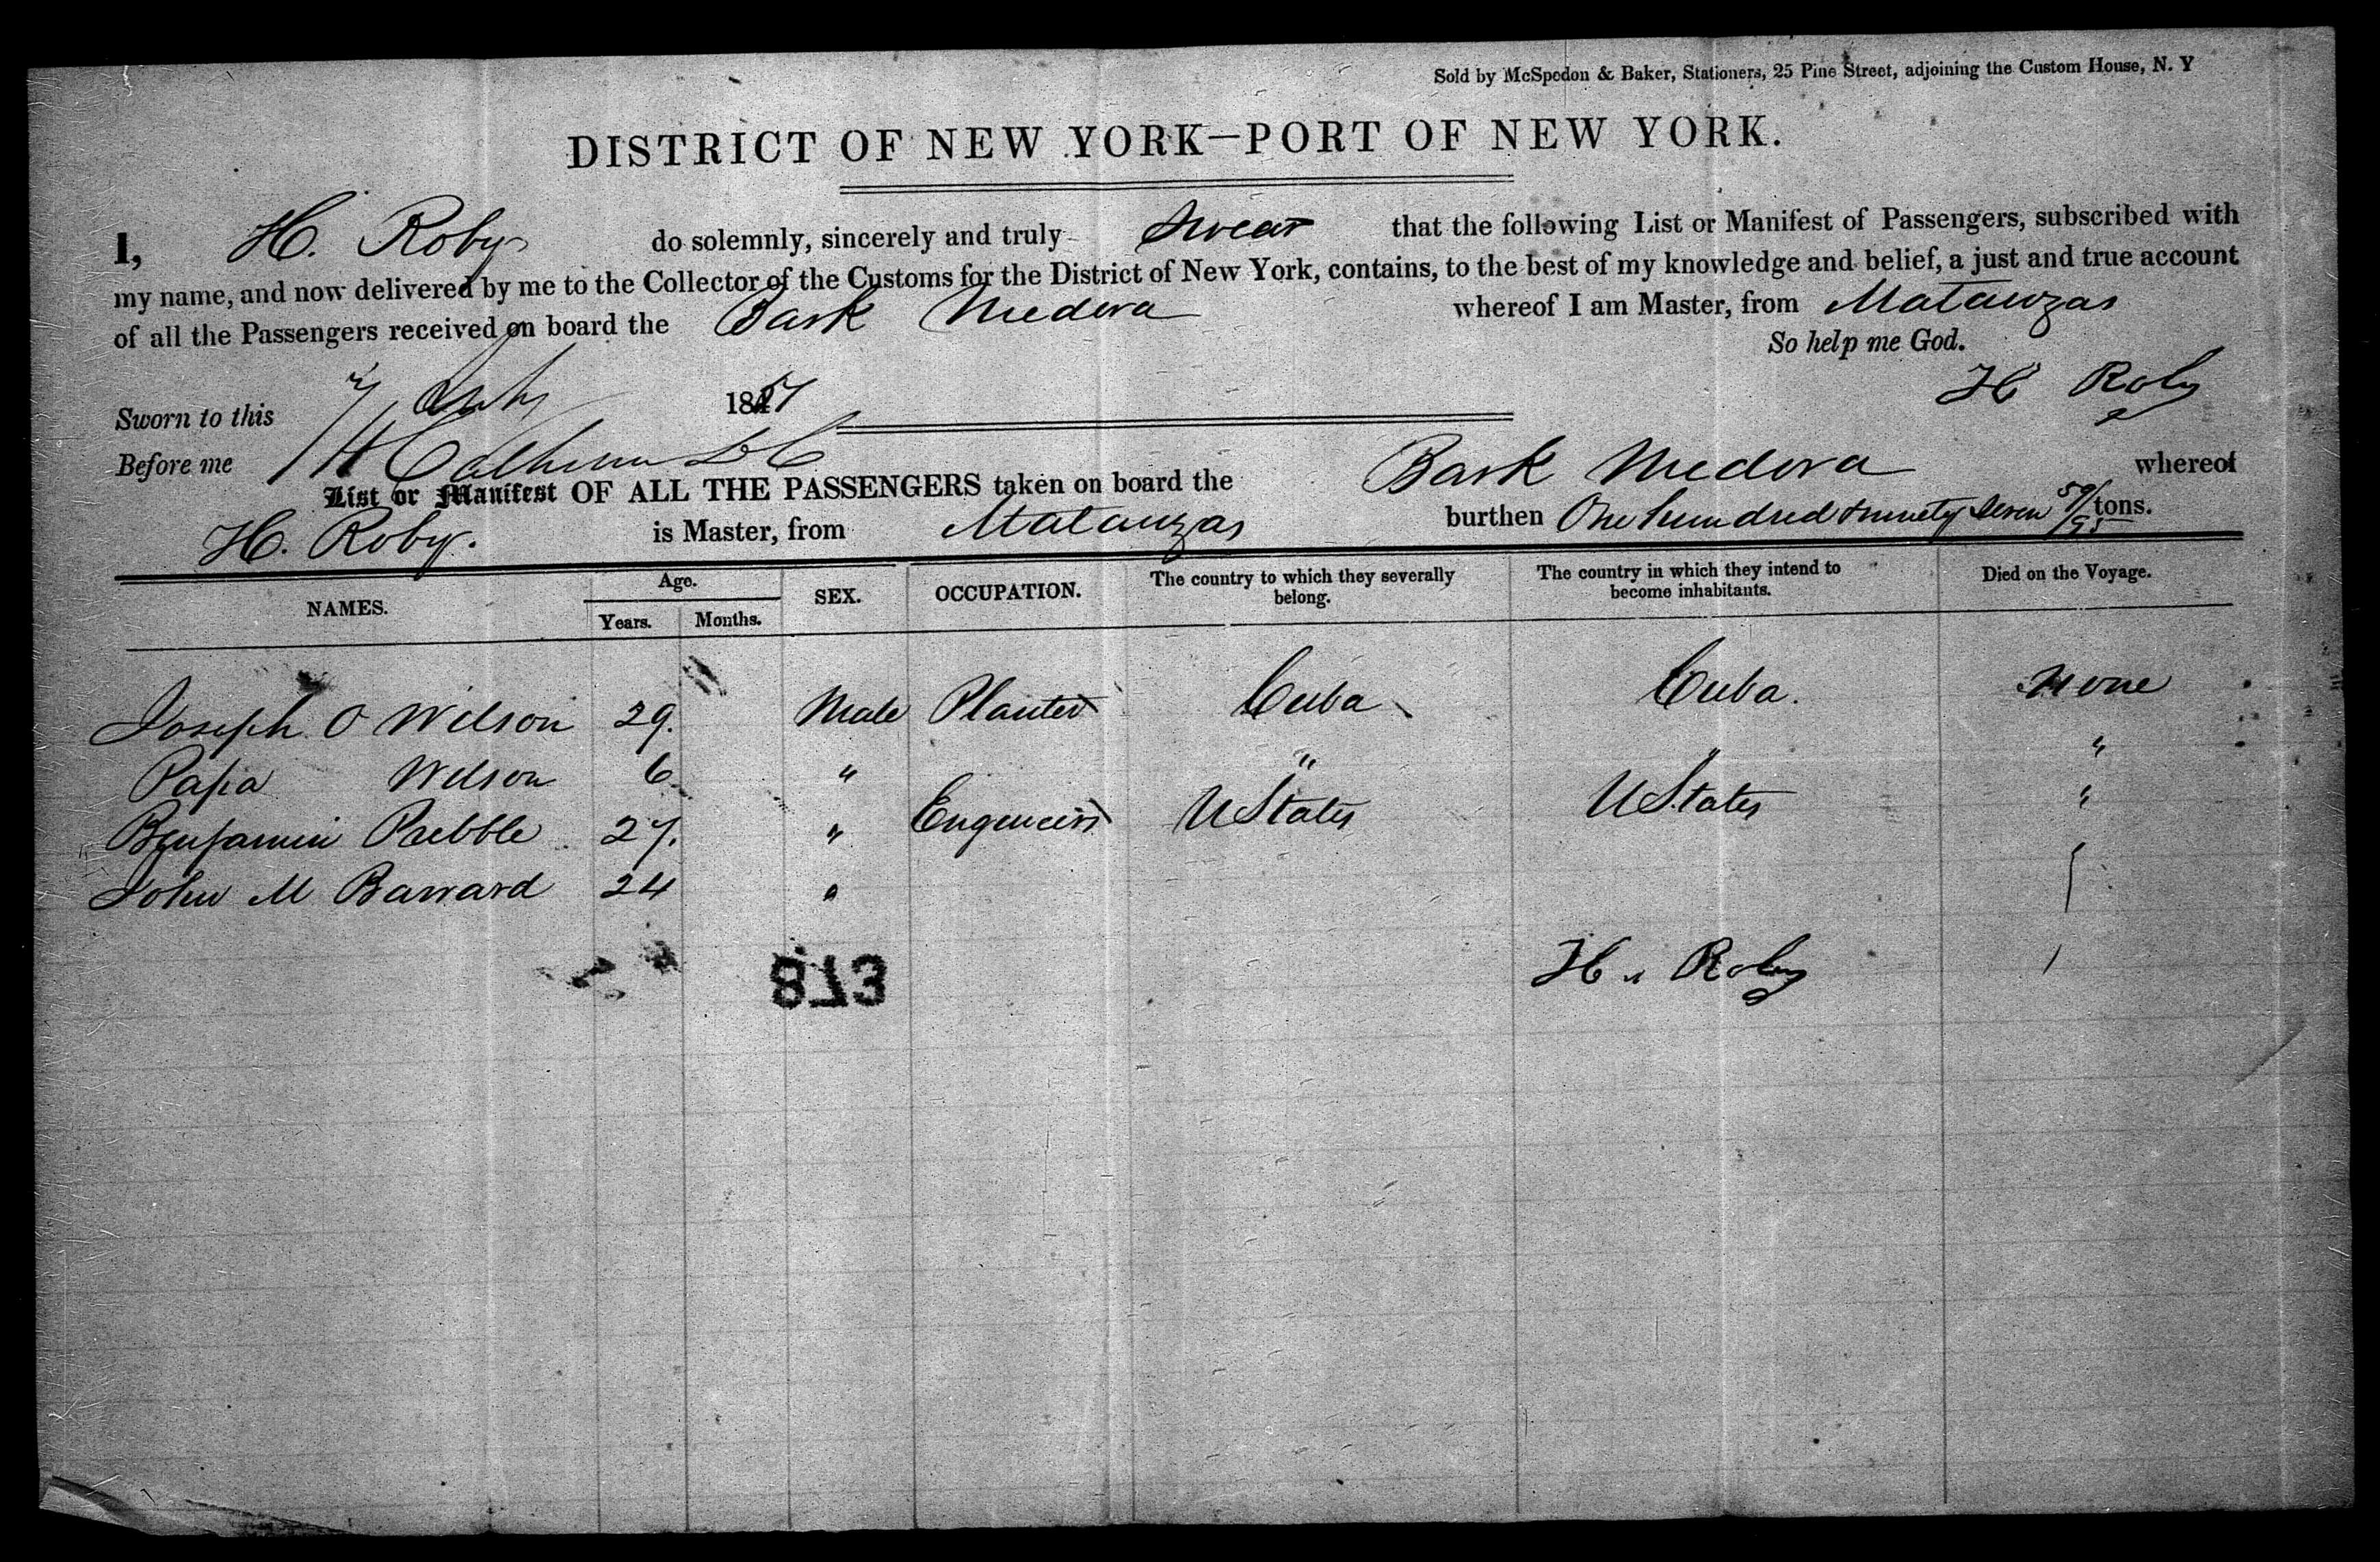 Sold by McSpedon & Baker, Stationers, 25 Pine Street, adjoining the Custom House, N. Y
DISTRICT OF NEW YORK—PORT OF NEW YORK.
I, H. Roby do solemnly, sincerely and truly swear that the following List or Manifest of Passengers, subscribed with
my name, and now delivered by me to the Collector of the Customs for the District of New York, contains, to the best of my knowledge and belief, a just and true account
of all the Passengers received on board the Bark Medora whereof I am Master, from Matanzas
So help me God.
Sworn to this July 1851 H Roby
Before me Calhoun D C
List or Manifest OF ALL THE PASSENGERS taken on board the Bark Medora whereof
H. Roby. is Master, from Matanzas burthen One hundred & ninety seven 59/95 tons.
NAMES. Age. Years. Months. SEX. OCCUPATION. The country to which they severally belong. The country in which they intend to become inhabitants. Died on the Voyage.
Joseph O Wilson 29. Male Planter Cuba Cuba. None
Papa Wilson 6 " " " "
Benjamin Prebble 27. " Engeneers UStates UStates "
John M Barrard 24 "
H. Roby
873